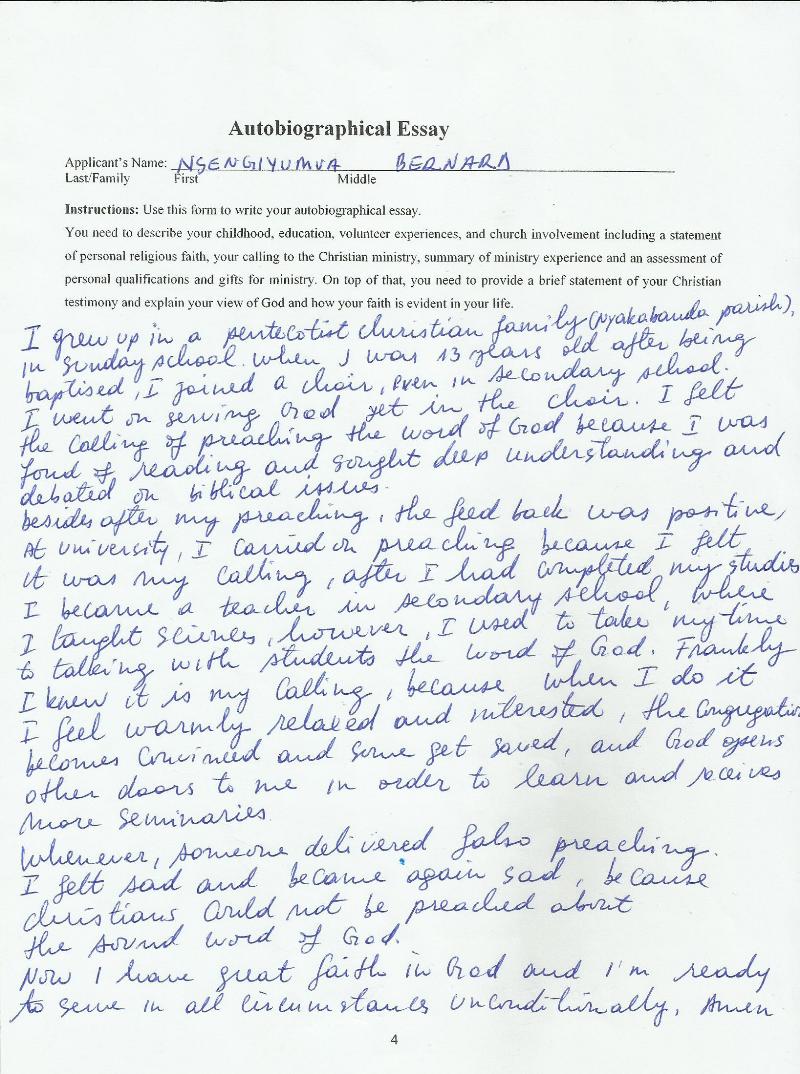 Autobiographical Essay
Applicant's Name: NSENGIYUMVA BERNARD
Last/Family First Middle
Instructions: Use this form to write your autobiographical essay.
You need to describe your childhood, education, volunteer experiences, and church involvement including a statement
of personal religious faith, your calling to the Christian ministry, summary of ministry experience and an assessment of
personal qualifications and gifts for ministry. On top of that, you need to provide a brief statement of your Christian
testimony and explain your view of God and how your faith is evident in your life.
I grew up in a pentecotist christian family (Nyakabanda parish),
in sunday school. when I was 13 years old after being
baptised, I joined a choir, even in secondary school.
I went on serving God yet in the choir. I felt
the calling of preaching the word of God because I was
fond of reading and sought deep understanding and
debated on biblical issues.
besides after my preaching, the feed back was positive,
At university, I carried on preaching because I felt
it was my calling, after I had completed my studies
I became a teacher in secondary school, where
I taught sciences, however, I used to take my time
to talking with students the word of God. Frankly
I knew it is my calling, because when I do it
I feel warmly relaxed and interested, the congregation
becomes convinced and some get saved, and God opens
other doors to me in order to learn and receives
more seminaries.
Whenever, someone delivered falso preaching.
I felt sad and became again sad, because
christians could not be preached about
the sound word of God.
Now I have great faith in God and I'm ready
to serve in all circumstances unconditionally, Amen
4